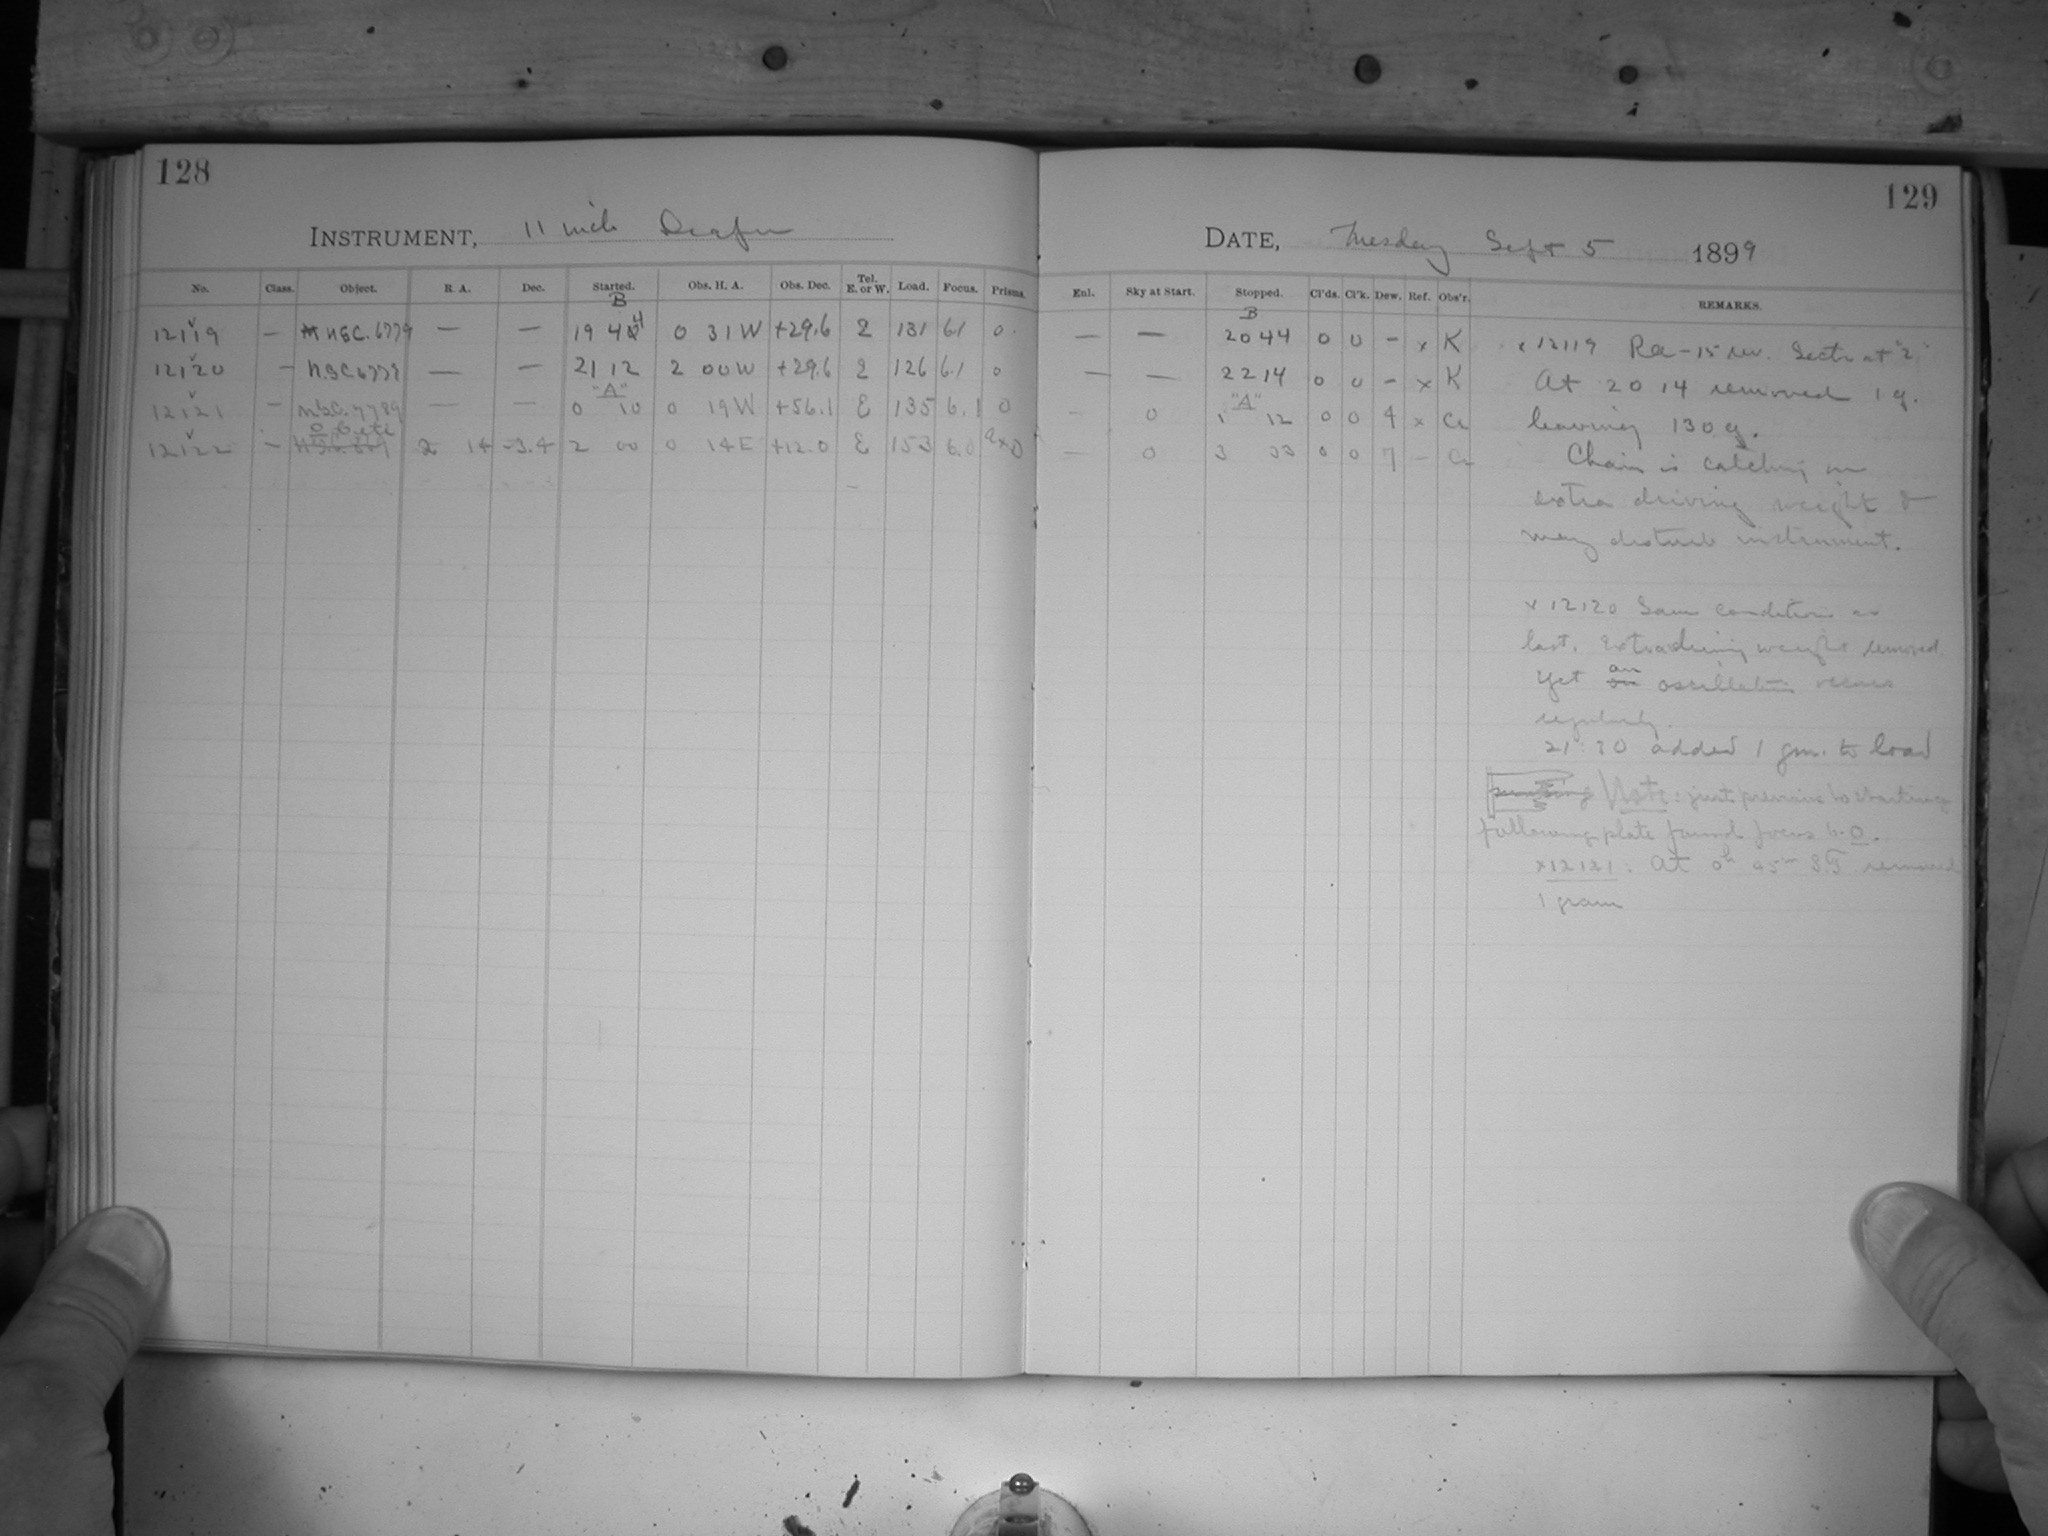 128
INSTRUMENT, 11 inch Draper
No. Class. Object. R. A. Dec. Started. Obs. H. A. Obs. Dec. Tel. E. or W. Load. Focus. Prisms.
B
12119 — NGC. 6779 — — 19 44 0 31 W +29.6 E 131 6.1 0
12120 — N.GC 6779 — — 21 12 2 00 W +29.6 E 126 6.1 0
"A"
12121 — NGC. 7789 — — 0 10 0 19 W +56.1 E 135 6.1 0
o Ceti
12122 — 2 14 -3.4 2 00 0 14 E +12.0 E 153 6.0 0
129
DATE, Tuesday Sept 5 1899
Enl. Sky at Start. Stopped. Cl'ds. Cl'k. Dew. Ref. Obs'r. REMARKS.
B
— — 20 44 0 0 - x K
— — 22 14 0 0 - x K
"A"
- 0 1 12 0 0 4 x Cr
- 0 3 03 0 0 7 - Cr
x 12119 RA - 15 rev. Sector at "2"
At 20 14 removed 1 g.
leaving 130 g.
Chain is catching on
extra driving weight &
may disturb instrument.
x 12120 Same conditions as
last. Extra driving weight removed
yet an oscillation occurs
regularly.
21:30 added 1 gm. to load
Note: just previous to starting
following plate found focus 6.0.
x12121: At 0h 45m S.T. removed
1 gram